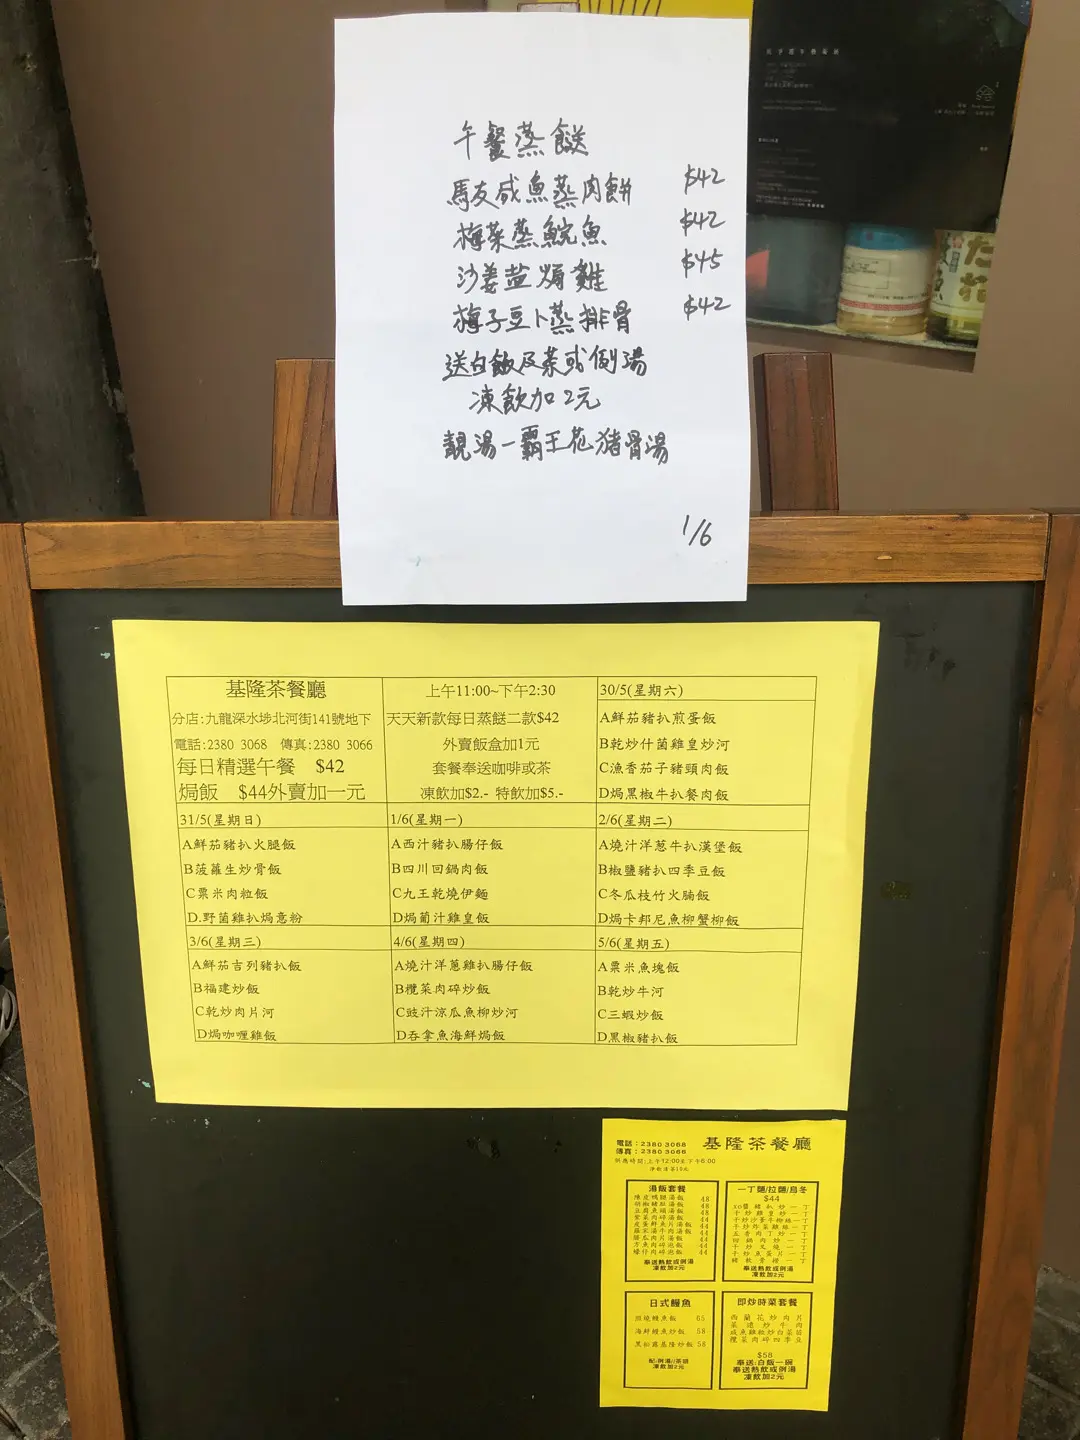 午餐蒸餸
馬友咸魚蒸肉餅 $42
梅菜蒸鯇魚 $42
沙姜盐焗雞 $45
梅子豆卜蒸排骨 $42
送白飯及茶或例湯
凍飲加2元
靚湯一霸王花猪骨湯
1/6
基隆茶餐廳
分店:九龍深水埗北河街141號地下
電話:2380 3068 傳真:2380 3066
每日精選午餐 $42
焗飯 $44外賣加一元
上午11:00~下午2:30
天天新款每日蒸餸二款$42
外賣飯盒加1元
套餐奉送咖啡或茶
凍飲加$2.- 特飲加$5.-
30/5(星期六)
A鮮茄豬扒煎蛋飯
B乾炒什菌雞皇炒河
C漁香茄子豬頸肉飯
D焗黑椒牛扒餐肉飯
31/5(星期日)
A鮮茄豬扒火腿飯
B菠蘿生炒骨飯
C粟米肉粒飯
D.野菌雞扒焗意粉
1/6(星期一)
A西汁豬扒腸仔飯
B四川回鍋肉飯
C九王乾燒伊麵
D焗葡汁雞皇飯
2/6(星期二)
A燒汁洋葱牛扒漢堡飯
B椒鹽豬扒四季豆飯
C冬瓜枝竹火腩飯
D焗卡邦尼魚柳蟹柳飯
3/6(星期三)
A鮮茄吉列豬扒飯
B福建炒飯
C乾炒肉片河
D焗咖喱雞飯
4/6(星期四)
A燒汁洋蔥雞扒腸仔飯
B欖菜肉碎炒飯
C豉汁涼瓜魚柳炒河
D吞拿魚海鮮焗飯
5/6(星期五)
A粟米魚塊飯
B乾炒牛河
C三蝦炒飯
D黑椒豬扒飯
電話:2380 3068
傳真:2380 3066
基隆茶餐廳
供應時間:上午12:00至下午6:00
湯飯套餐
48
48
48
44
44
44
44
44
44
奉送熱飲或例湯
凍飲加2元
一丁麵/拉麵/烏冬
$44
奉送熱飲或例湯
凍飲加2元
日式鰻魚
照燒鰻魚飯 65
海鮮鰻魚炒飯 58
黑松露基隆炒飯 58
配:例湯/茶頭
凍飲加2元
即炒時菜套餐
西蘭花炒肉片
菜遠炒牛肉
咸魚雞粒炒白菜苗
欖菜肉碎四季豆
$58
奉送:白飯一碗
奉送熱飲或例湯
凍飲加2元